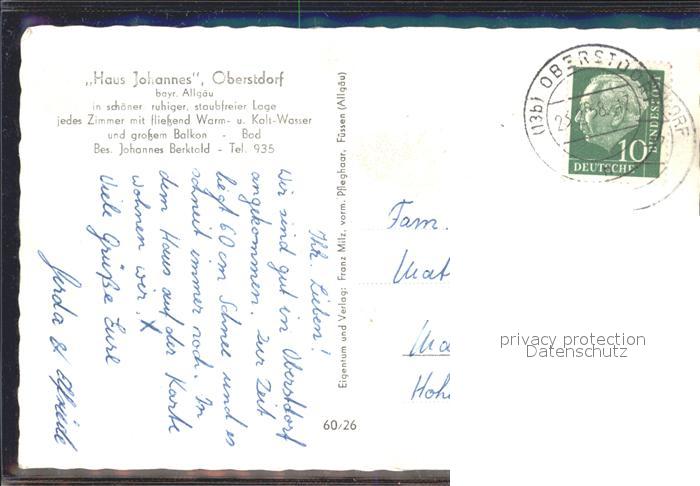 „Haus Johannes", Oberstdorf
bayr. Allgäu
in schöner, ruhiger, staubfreier Lage
jedes Zimmer mit fließend Warm- u. Kalt-Wasser
und großem Balkon - Bad
Bes. Johannes Berktold - Tel. 935
Ihr Lieben!
Wir sind gut in Oberstdorf
angekommen. Zur Zeit
liegt 60 cm Schnee und es
schneit immer noch. In
dem Haus auf der Karte
wohnen wir. X
Viele Grüße Eure
Gerda &
Eigentum und Verlag: Franz Milz, vorm. Pfleghaar, Füssen (Allgäu)
60/26
(13b) OBERSTDORF
10
DEUTSCHE
BUNDESPOST
Fam.
Mat
Ma
Hoh
privacy protection
Datenschutz